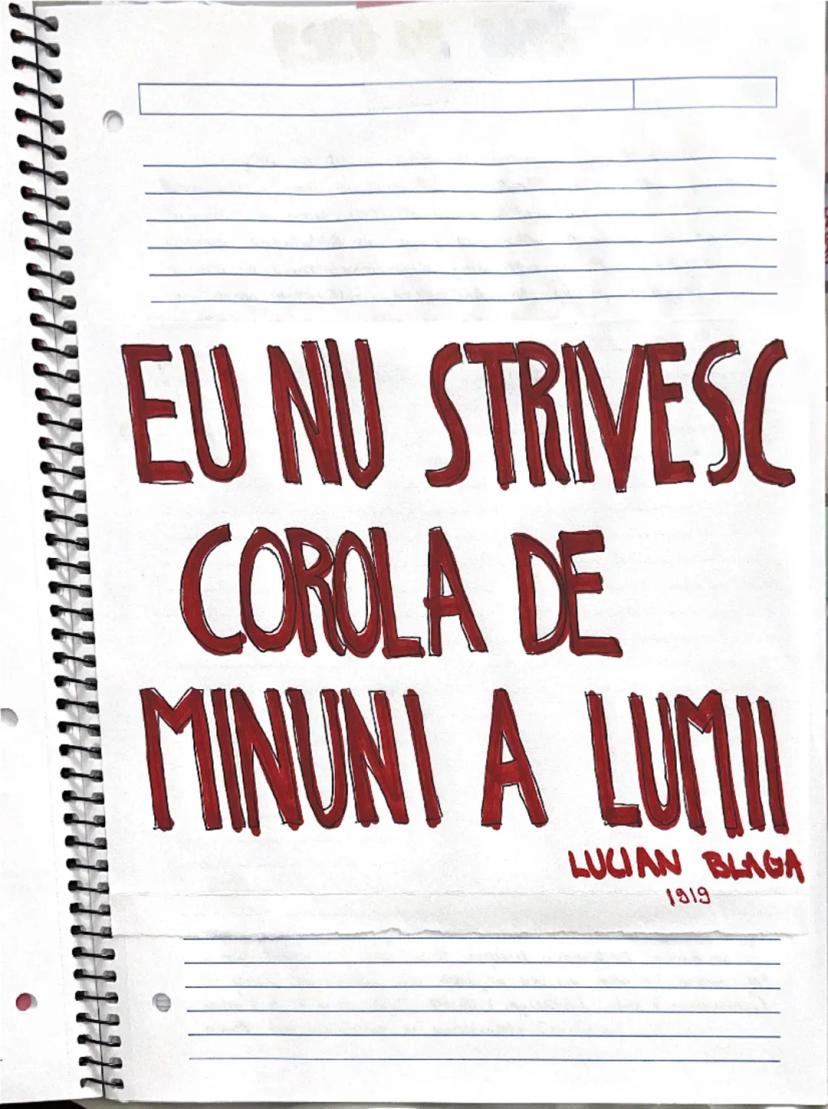 EU NU STRIVESC
COROLA DE
MINUNI A LUMII
LUCIAN BLAGA
1919